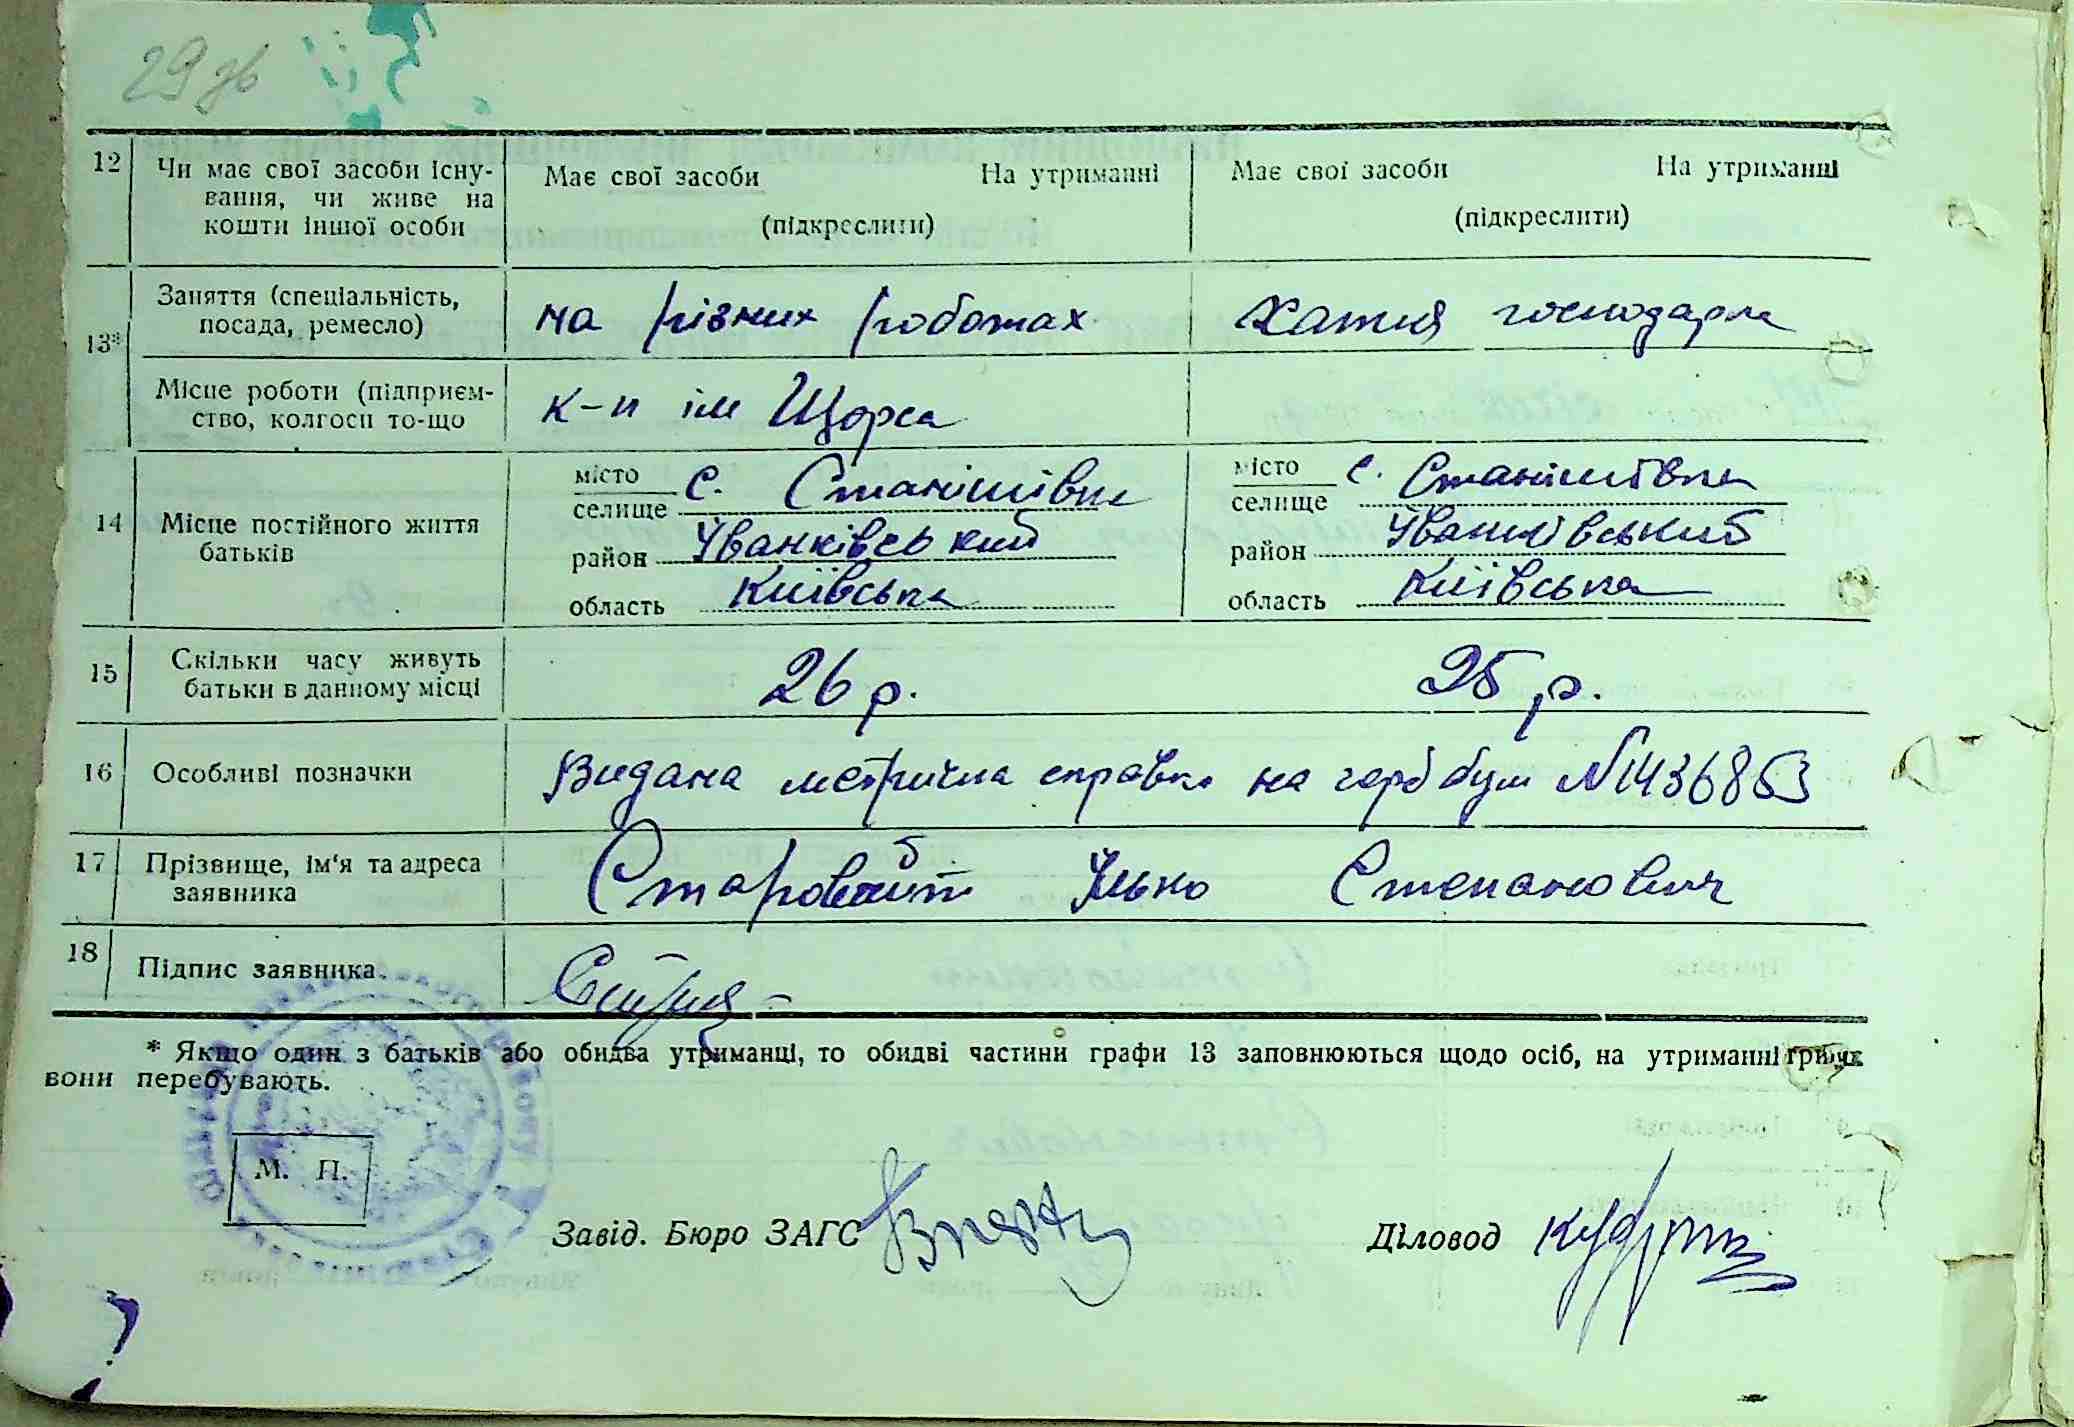 29 зв
12 Чи має свої засоби існу-
вання, чи живе на
кошти іншої особи
Має свої засоби На утриманні
(підкреслити)
Має свої засоби На утриманні
(підкреслити)
13* Заняття (спеціальність,
посада, ремесло)
на різних роботах
хатня господарка
Місце роботи (підприєм-
ство, колгосп то-що
к-п ім Щорса
14 Місце постійного життя
батьків
місто
селище с. Станішівка
район Іванківський
область Київська
місто
селище с. Станішівка
район Іванківський
область Київська
15 Скільки часу живуть
батьки в данному місці
26 р.
25 р.
16 Особливі позначки
Видана метрична справка на герб бум №1436863
17 Прізвище, ім'я та адреса
заявника
Старовойт Улько Степанович
18 Підпис заявника.
* Якщо один з батьків або обидва утриманці, то обидві частини графи 13 заповнюються щодо осіб, на утриманні
вони перебувають.
М. П.
Завід. Бюро ЗАГС
Діловод